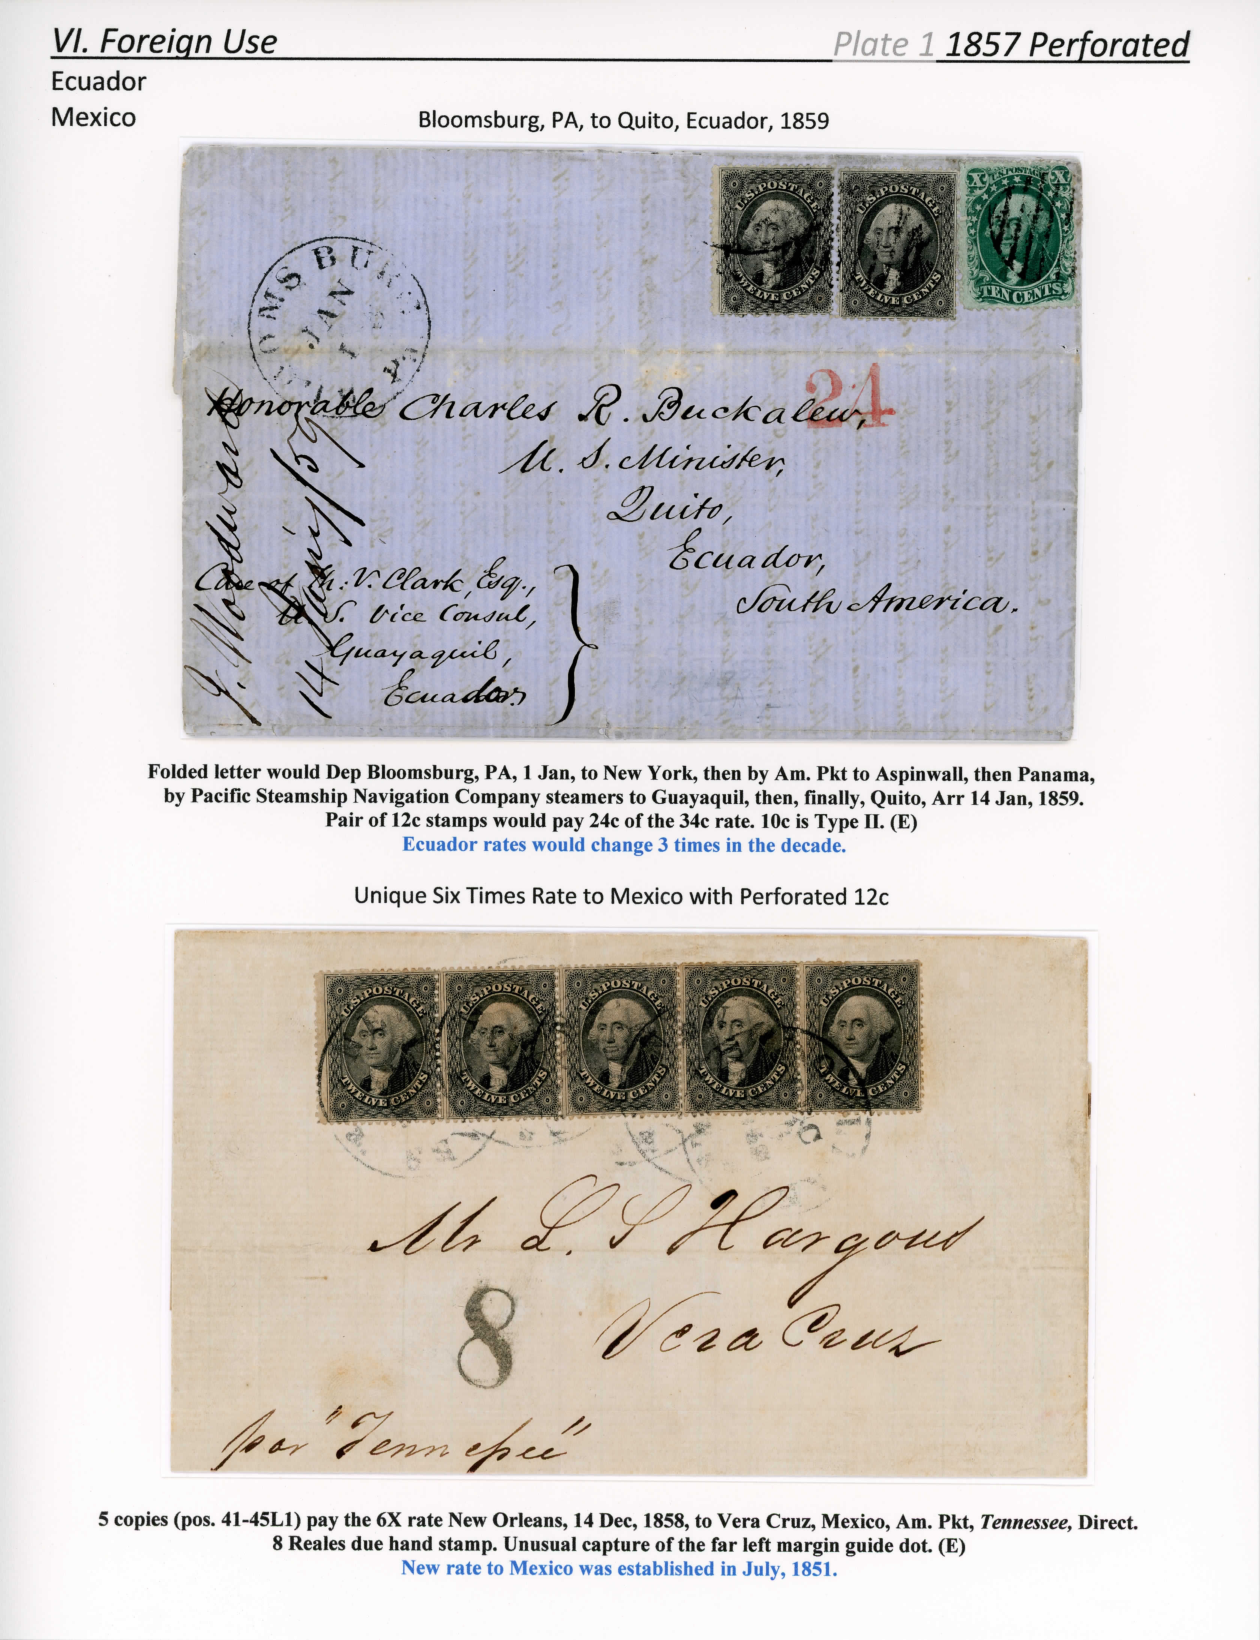 VI. Foreign Use
Plate 1 1857 Perforated
Ecuador
Mexico
Bloomsburg, PA, to Quito, Ecuador, 1859
U.S. POSTAGE
TWELVE CENTS
U.S. POSTAGE
TWELVE CENTS
X U.S. POSTAGE X
TEN CENTS
OMSBURG PA
JAN
1
24
Honorable Charles R. Buckalew,
U. S. Minister,
Quito,
Ecuador,
South America.
Care of M: V. Clark, Esq.,
U. S. Vice Consul,
Guayaquil,
Ecuador.
J. Woodward
14 Jany/59
Folded letter would Dep Bloomsburg, PA, 1 Jan, to New York, then by Am. Pkt to Aspinwall, then Panama,
by Pacific Steamship Navigation Company steamers to Guayaquil, then, finally, Quito, Arr 14 Jan, 1859.
Pair of 12c stamps would pay 24c of the 34c rate. 10c is Type II. (E)
Ecuador rates would change 3 times in the decade.
Unique Six Times Rate to Mexico with Perforated 12c
U.S. POSTAGE
TWELVE CENTS
U.S. POSTAGE
TWELVE CENTS
U.S. POSTAGE
TWELVE CENTS
U.S. POSTAGE
TWELVE CENTS
U.S. POSTAGE
TWELVE CENTS
Mr L. S Hargous
8
Vera Cruz
por "Tennessee"
5 copies (pos. 41-45L1) pay the 6X rate New Orleans, 14 Dec, 1858, to Vera Cruz, Mexico, Am. Pkt, Tennessee, Direct.
8 Reales due hand stamp. Unusual capture of the far left margin guide dot. (E)
New rate to Mexico was established in July, 1851.